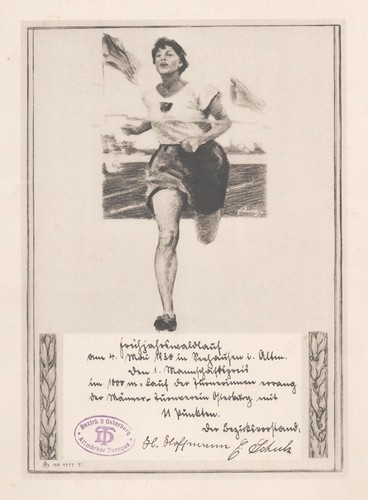 Frühjahrswaldlauf
am 4. Mai 1930 in Seehausen i. Altm.
Den 1. Mannschaftspreis
im 1000 m. Lauf der Turnerinnen errang
der Männer-Turnverein Osterburg mit
11 Punkten.
Der Bezirksvorstand:
H. Hoffmann E. Schulz
Bezirk 3 Osterburg
DT
Altmärker Turngau